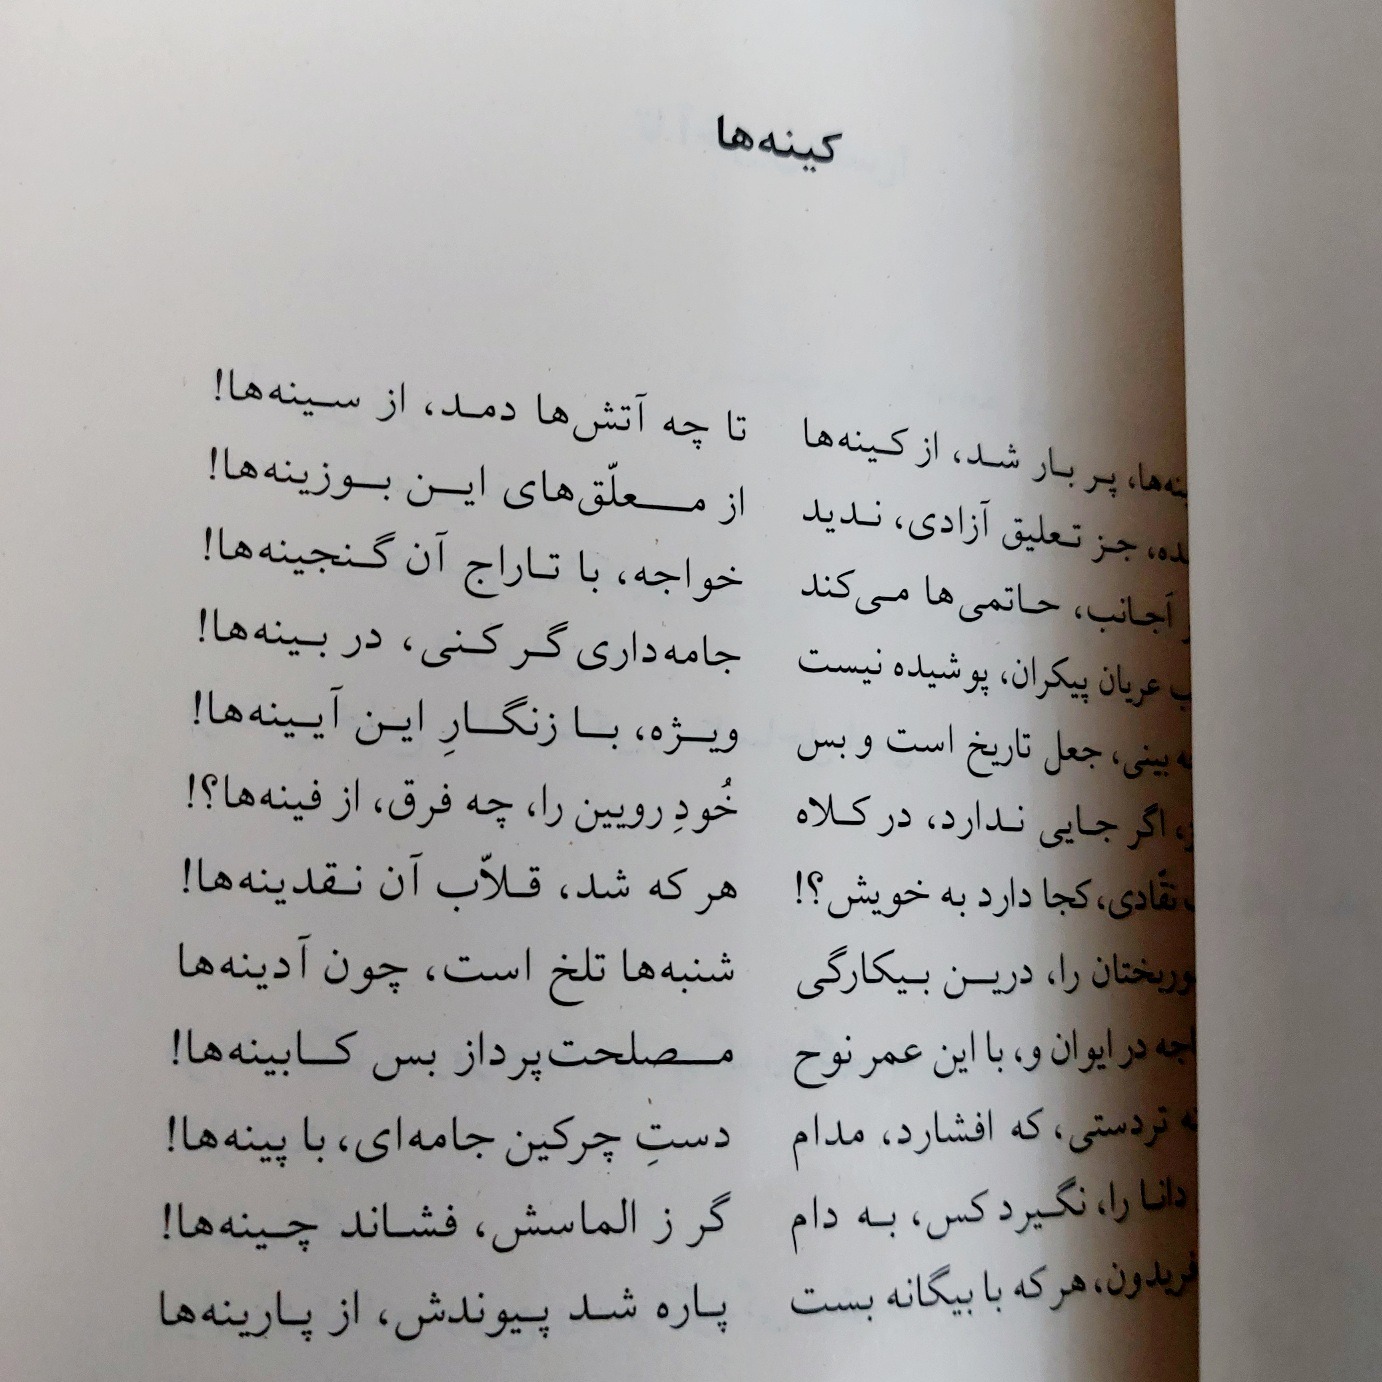 کینه‌ها
پر بار شد، از کینه‌ها تا چه آتش‌ها دمد، از سینه‌ها!
جز تعلیق آزادی، ندید از معلّق‌های این بوزینه‌ها!
اَجانب، حاتمی‌ها می‌کند خواجه، با تاراج آن گنجینه‌ها!
عریان پیکران، پوشیده نیست جامه‌داری گر کنی، در بینه‌ها!
بینی، جعل تاریخ است و بس ویژه، با زنگارِ این آیینه‌ها!
اگر جایی ندارد، در کلاه خُودِ رویین را، چه فرق، از فینه‌ها؟!
نقّادی، کجا دارد به خویش؟! هر که شد، قلاّب آن نقدینه‌ها!
را، درین بیکارگی شنبه‌ها تلخ است، چون آدینه‌ها
در ایوان و، با این عمر نوح مصلحت‌پرداز بس کابینه‌ها!
تردستی، که افشارد، مدام دستِ چرکین جامه‌ای، با پینه‌ها!
دانا را، نگیرد کس، به دام گر ز الماسش، فشاند چینه‌ها!
هر که با بیگانه بست پاره شد پیوندش، از پارینه‌ها